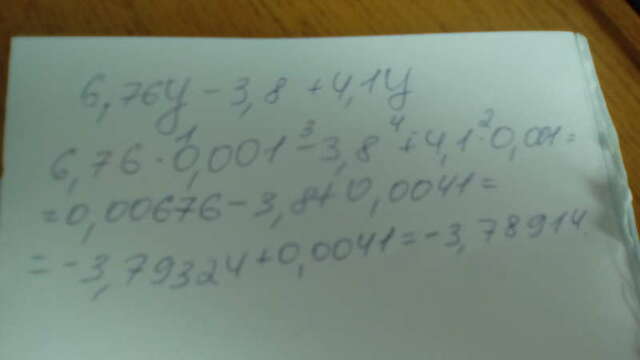 6,76y - 3,8 + 4,1y
6,76 ·¹ 0,001 -³ 3,8 +⁴ 4,1 ·² 0,001 =
= 0,00676 - 3,8 + 0,0041 =
= -3,79324 + 0,0041 = -3,78914